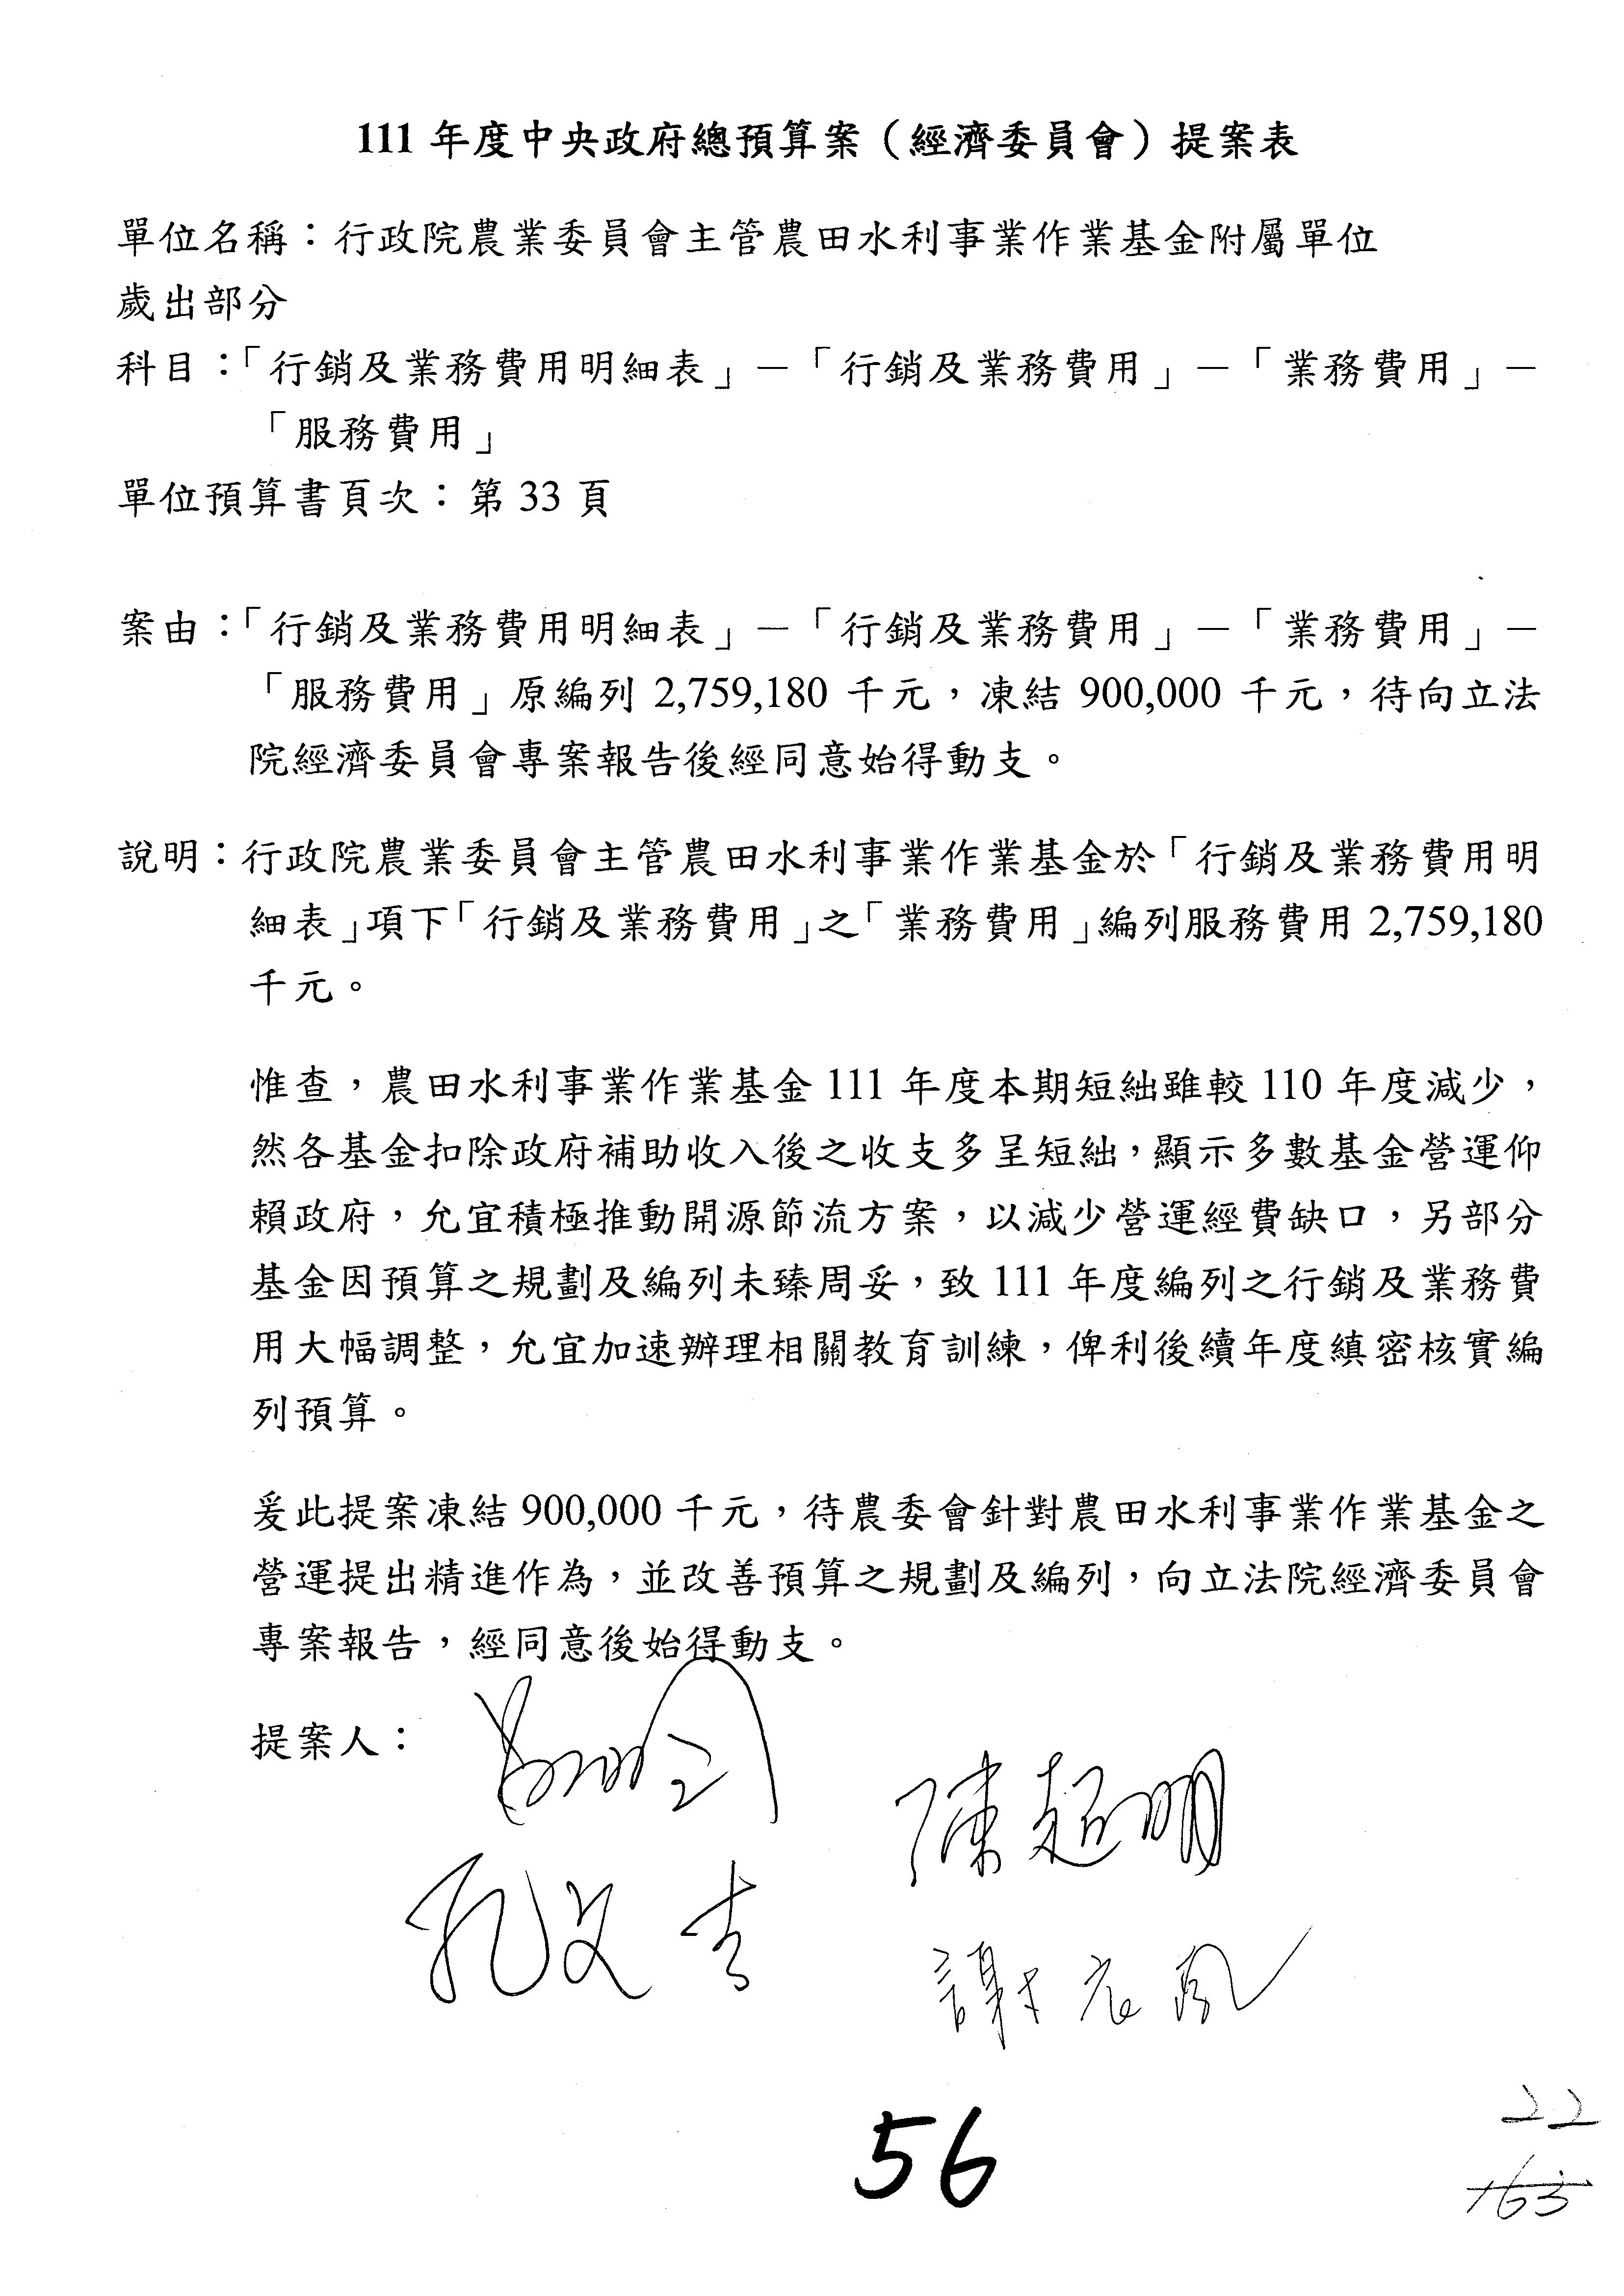 111 年度中央政府總預算案（經濟委員會）提案表
單位名稱：行政院農業委員會主管農田水利事業作業基金附屬單位
歲出部分
科目：「行銷及業務費用明細表」－「行銷及業務費用」－「業務費用」－
「服務費用」
單位預算書頁次：第 33 頁
案由：「行銷及業務費用明細表」－「行銷及業務費用」－「業務費用」－
「服務費用」原編列 2,759,180 千元，凍結 900,000 千元，待向立法
院經濟委員會專案報告後經同意始得動支。
說明：行政院農業委員會主管農田水利事業作業基金於「行銷及業務費用明
細表」項下「行銷及業務費用」之「業務費用」編列服務費用 2,759,180
千元。
惟查，農田水利事業作業基金 111 年度本期短絀雖較 110 年度減少，
然各基金扣除政府補助收入後之收支多呈短絀，顯示多數基金營運仰
賴政府，允宜積極推動開源節流方案，以減少營運經費缺口，另部分
基金因預算之規劃及編列未臻周妥，致 111 年度編列之行銷及業務費
用大幅調整，允宜加速辦理相關教育訓練，俾利後續年度縝密核實編
列預算。
爰此提案凍結 900,000 千元，待農委會針對農田水利事業作業基金之
營運提出精進作為，並改善預算之規劃及編列，向立法院經濟委員會
專案報告，經同意後始得動支。
提案人：
陳超明
孔文吉
謝衣鳳
56
22
163